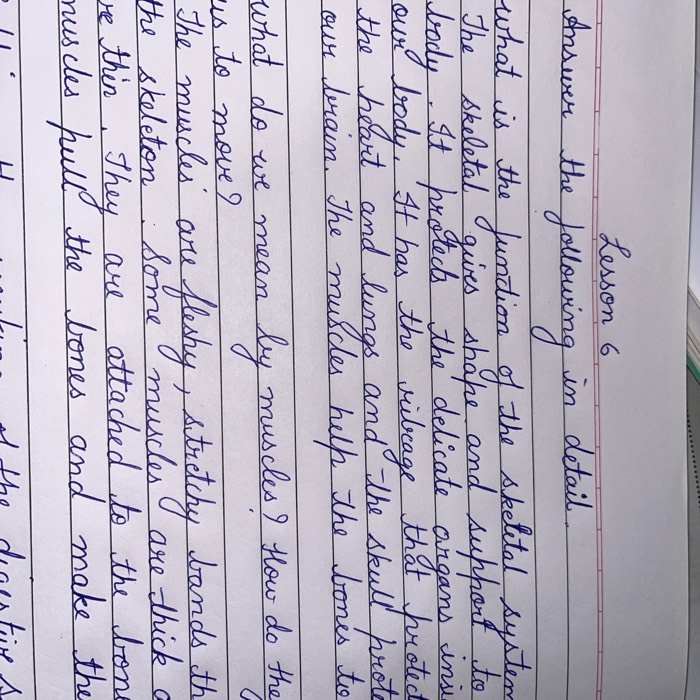 Lesson 6
Answer the following in detail.
what is the function of the skeletal system
The skeletal gives shape and support to
body. It protects the delicate organs insi
our body. It has the ribcage that protec
the heart and lungs and the skull prote
our brain. The muscles help the bones to
what do we mean by muscles? How do the
us to move?
The muscles are fleshy, stretchy bands th
the skeleton. Some muscles are thick a
re thin. They are attached to the bone
muscles pull the bones and make the
the digestive s